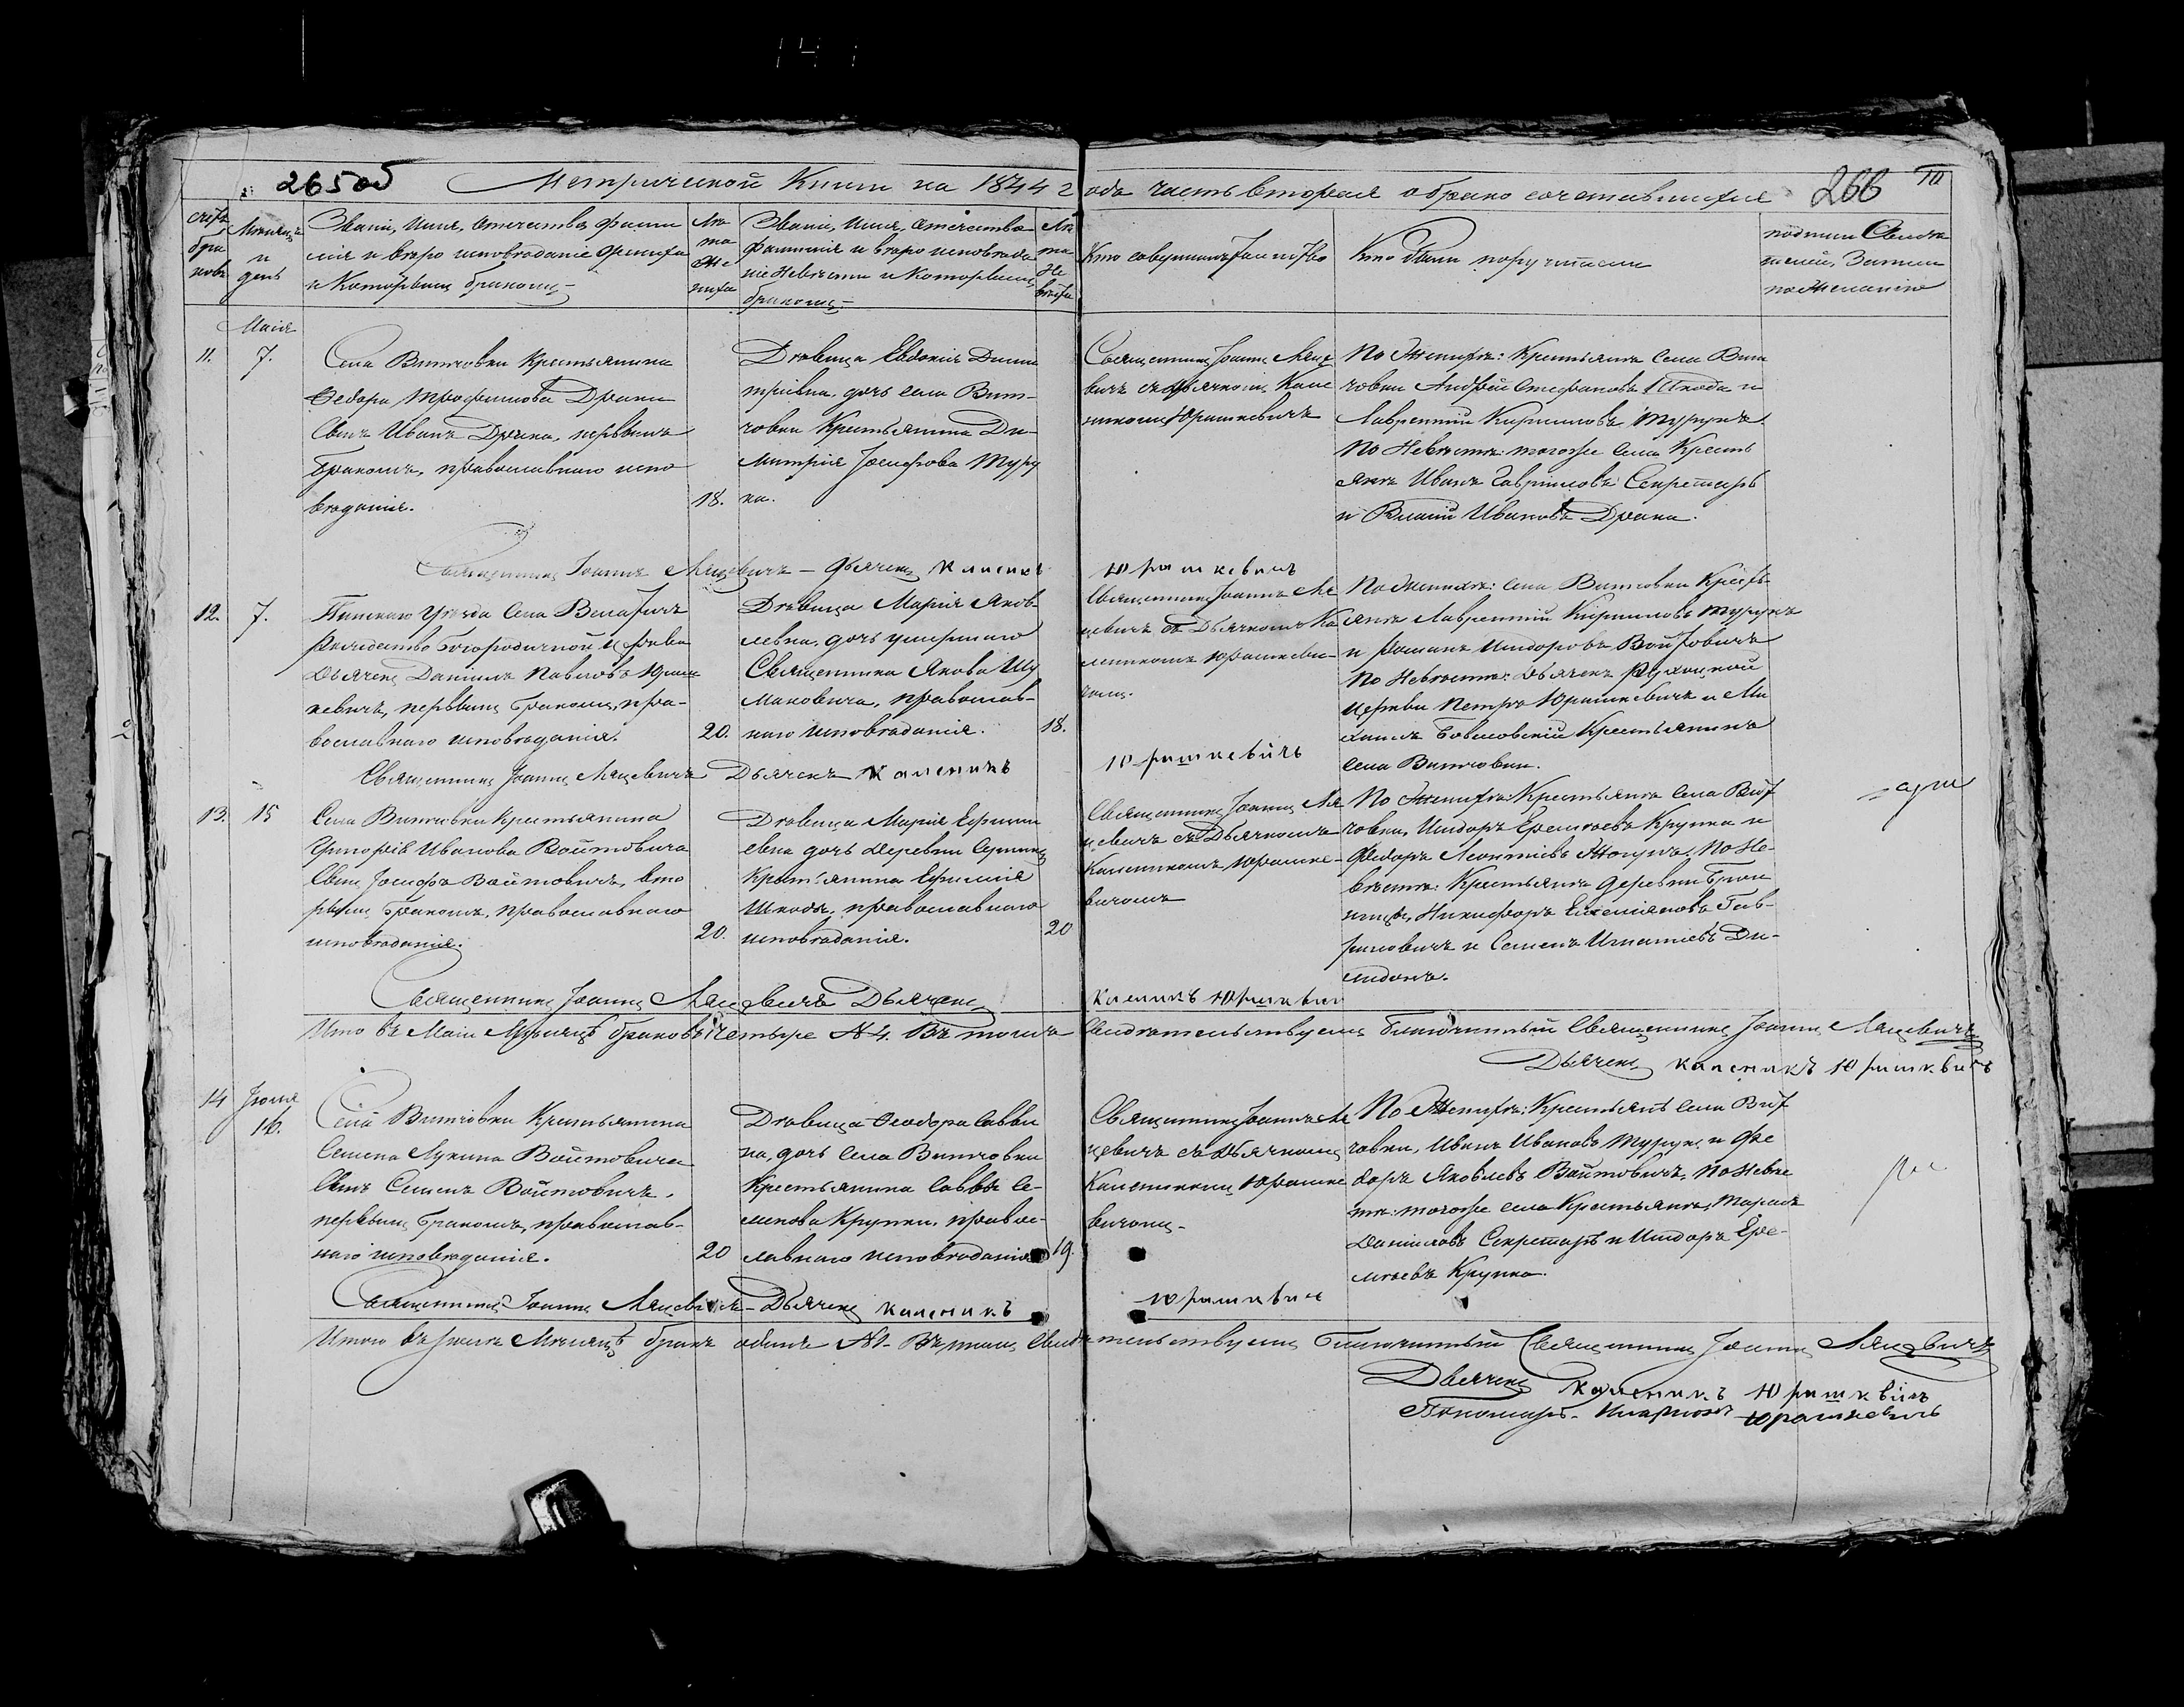 265об Метрической Книги на 1844 года часть вторая о бракосочетавшихся 266
счетъ браковъ
Мѣсяцъ и день
Званіе, имя, отечество, фамилія и вѣроисповѣданіе жениха и которымъ бракомъ
Лѣта жениха
Званіе, имя, отечество фамилія и вѣроисповѣданіе невѣсты и которымъ бракомъ
Лѣта невѣсты
Кто совершилъ таинство
Кто были поручители
подписи Свидѣтелей, Записи по желанію
Маія
11. 7.
Села Витчовки Крестьянина
Ѳедора Трофимова Драки
Сынъ Иванъ Драка, первымъ
бракомъ, православнаго испо
вѣданія.
18.
Дѣвица Евдокія Дими
тріевна, дочь села Вит-
човки Крестьянина Ди-
митрія Іосифова Туру
ка.
Священникъ Іоаннъ Мяце
вичъ съ дьячкомъ Кале
никомъ Юрашкевичъ
По женихѣ: Крестьяне села Вит
човки Андрей Стефановъ Шкода и
Лаврентій Кириловъ Турукъ.
По Невѣстѣ: тогоже села Кресть
яне Иванъ Гавріиловъ Секретарь
и Власій Ивановъ Драка.
Священникъ Іоаннъ Мяцевичъ - Дьячекъ Каленикъ Юрашкевичъ
12. 7.
Пинскаго Уѣзда села
Рождество Богородичной Церкви
Дьячекъ Даніилъ Павловъ Юраш
кевичъ, первымъ бракомъ, пра-
вославнаго исповѣданія.
20.
Дѣвица Марія Яков-
левна, дочь умершаго
Священника Якова Шу
маковича, православ-
наго исповѣданія.
18.
Священникъ Іоаннъ Мя
цевичъ съ Дьячкомъ Ка
леникомъ Юрашкеви-
чемъ.
По женихѣ: села Витчовки Кресть
яне Лаврентій Кириловъ Турукъ
и Романъ Исидоровъ Войтовичъ
По Невѣстѣ: Дьячекъ
Церкви Петръ Юрашкевичъ и Ми
хаилъ Крестьянинъ
села Витчовки.
Священникъ Іоаннъ Мяцевичъ Дьячекъ Каленикъ Юрашкевичъ
13. 15
Села Витчовки Крестьянина
Григорія Иванова Войтовича
Сынъ Іосифъ Войтовичъ, вто
рымъ бракомъ, православнаго
исповѣданія.
20.
Дѣвица Марія Ефими
евна дочь деревни
Крестьянина Ефимія
Шкоды, православнаго
исповѣданія.
20
Священникъ Іоаннъ Мя
цевичъ съ Дьячкомъ
Каленикомъ Юрашке-
вичемъ
По женихѣ: Крестьяне села Вит
човки, Исидоръ Еремѣевъ Крупка и
Ѳедоръ Леонтіевъ По Не-
вѣстѣ: Крестьяне деревни
Никифоръ Гав-
риловичъ и Семенъ Игнатіевъ Ди-
мидокъ.
Священникъ Іоаннъ Мяцевичъ Дьячекъ Каленикъ Юрашкевич
Итого въ Маіи Мѣсяцѣ браковъ четыре № 4. Въ томъ Свидѣтельствуемъ Благочинный Священникъ Іоаннъ Мяцевичъ
Дьячекъ Каленикъ Юрашкевичъ
14 Іюня 16.
Села Витчовки Крестьянина
Семена Лукина Войтовича
Сынъ Семенъ Войтовичъ,
первымъ бракомъ, православ-
наго исповѣданія.
20
Дѣвица Ѳеодора Савви
на, дочь села Витчовки
Крестьянина Саввы Се-
менова Крупки, правос-
лавнаго исповѣданія
19.
Священникъ Іоаннъ Мя
цевичъ съ Дьячкомъ
Каленикомъ Юрашке
вичемъ.
По Женихѣ: Крестьяне села Вит
човки, Иванъ Ивановъ Турукъ и Ѳе
доръ Яковлевъ Войтовичъ, По Невѣ
стѣ: тогоже села Крестьяне, Тарасъ
Даніиловъ Секретарь и Исидоръ Ере-
мѣевъ Крупка.
Священникъ Іоаннъ Мяцевичъ - Дьячекъ Каленикъ Юрашкевич
Итого въ Іюнѣ Мѣсяцѣ бракъ одинъ №1. Въ томъ Свидѣтельствуемъ Благочинный Священникъ Іоаннъ Мяцевичъ
Дьячекъ Каленикъ Юрашкевичъ
Пономарь Юрашкевичъ